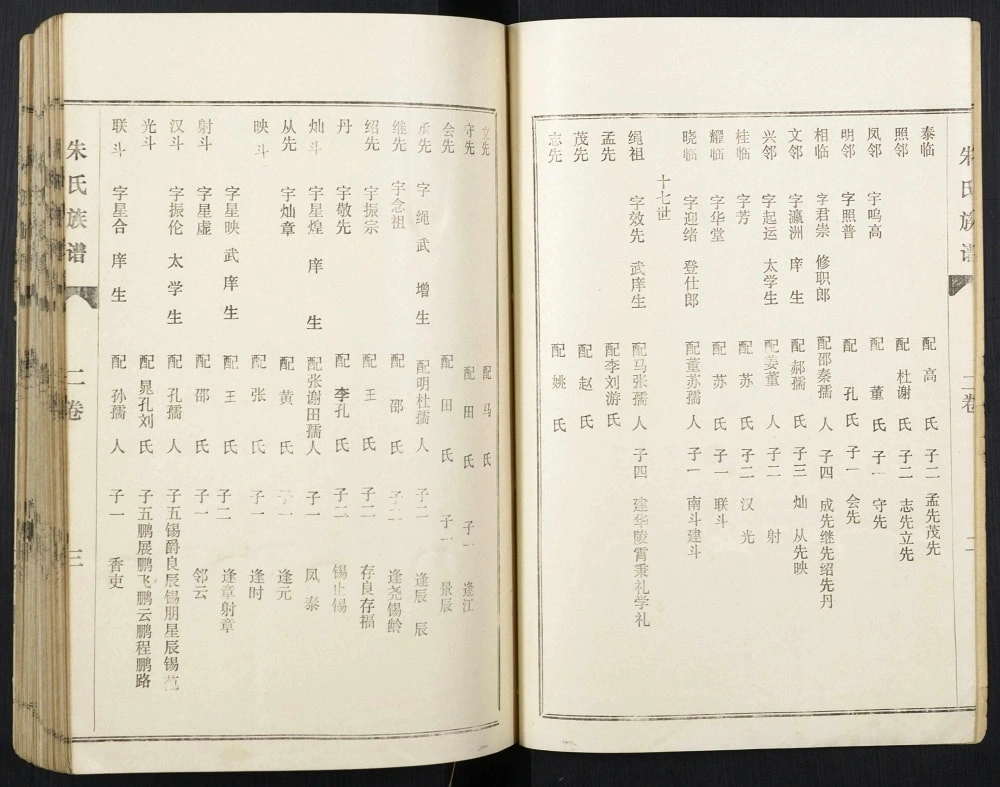 朱氏族谱 二卷 二
泰临 配高氏 子二 孟先茂先
照邻 配杜谢氏 子二 志先立先
凤邻 字鸣高 配董氏 子一 守先
明邻 字照普 配孔氏 子一 会先
相临 字君崇 修职郎 配邵秦孺人 子四 成先继先绍先丹
文邻 字瀛洲 庠生 配郝孺氏 子三 灿 从先映
兴邻 字起运 太学生 配姜董人 子二 射
桂临 字芳 配苏氏 子二 汉 光
耀临 字华堂 配苏氏 子一 联斗
晓临 字迎绪 登仕郎 配董苏孺人 子一 南斗建斗
十七世
绳祖 字效先 武庠生 配马张孺人 子四 建华陵霄秉礼学礼
孟先 配李刘游氏
茂先 配赵氏
志先 配姚氏
文先 配马氏
守先 配田氏 子一 逢江
会先 配田氏 子一 景辰
承先 字绳武 增生 配明杜孺人 子二 逢辰 辰
继先 字念祖 配邵氏 逢尧锡龄
绍先 字振宗 配王氏 子二 存良存福
丹 字敬先 配李孔氏 子二 锡止锡
灿斗 字星煌 庠生 配张谢田孺人 子一 凤泰
从先 字灿章 配黄氏 子一 逢元
映斗 配张氏 子一 逢时
字星映 武庠生 配王氏 子二 逢章射章
射斗 字星虚 配邵氏 子一 邻云
汉斗 字振伦 太学生 配孔孺人 子五 锡爵良辰锡朋星辰锡
光斗 配晁孔刘氏 子五 鹏展鹏飞鹏云鹏程鹏路
联斗 字星合 庠生 配孙孺人 子一 香吏
朱氏族谱 二卷 三